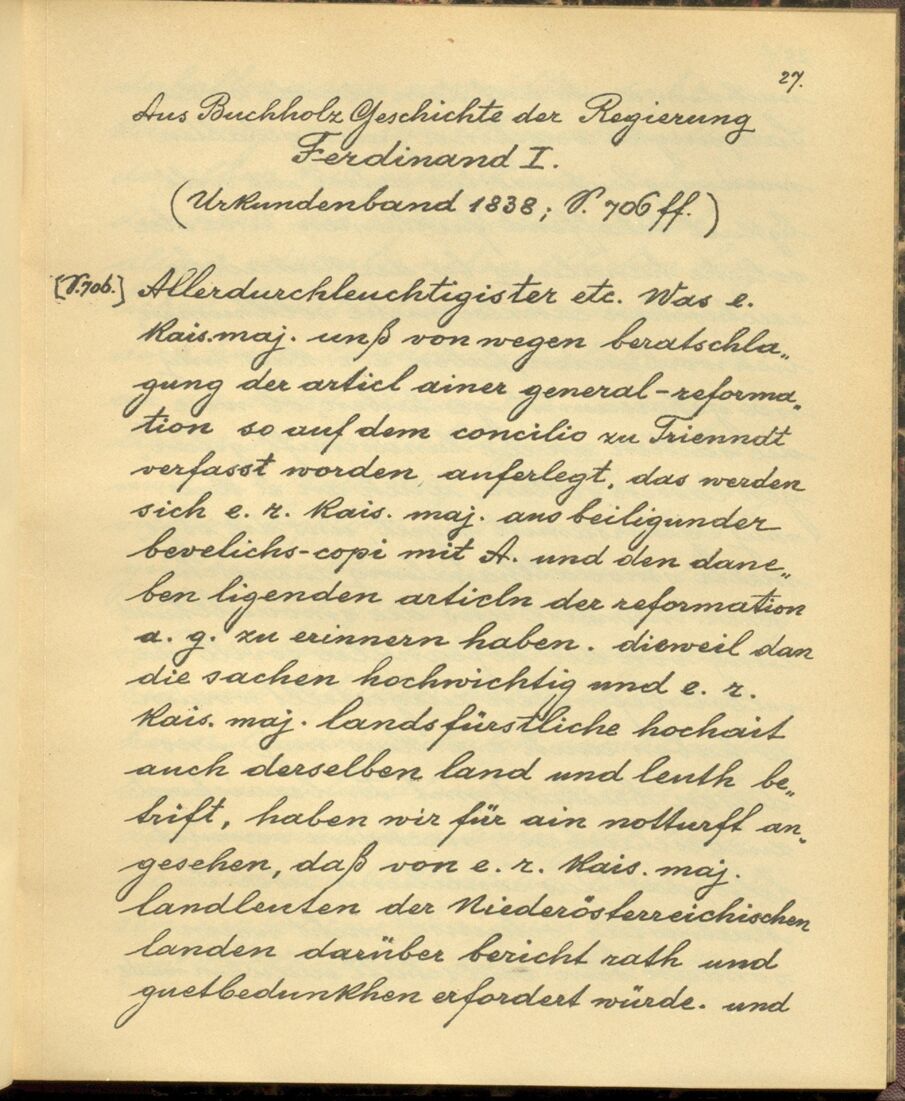 27.
Aus Buchholz Geschichte der Regierung
Ferdinand I.
(Urkundenband 1838; S. 706 ff.)
[S. 706.] Allerdurchleuchtigister etc. Was e.
kais. maj. unß von wegen beratschla„
gung der articl ainer general-reforma„
tion so auf dem concilio zu Trienndt
verfasst worden auferlegt, das werden
sich e. r. kais. maj. aus beiligunder
bevelichs-copi mit A. und den dane„
ben ligenden articln der reformation
a. g. zu erinnern haben. dieweil dan
die sachen hochwichtig und e. r.
kais. maj. landsfürstliche hochait
auch derselben land und leuth be„
trift, haben wir für ain notturft an„
gesehen, daß von e. r. kais. maj.
landleuten der Niederösterreichischen
landen darüber bericht rath und
guetbedunkhen erfordert würde. und